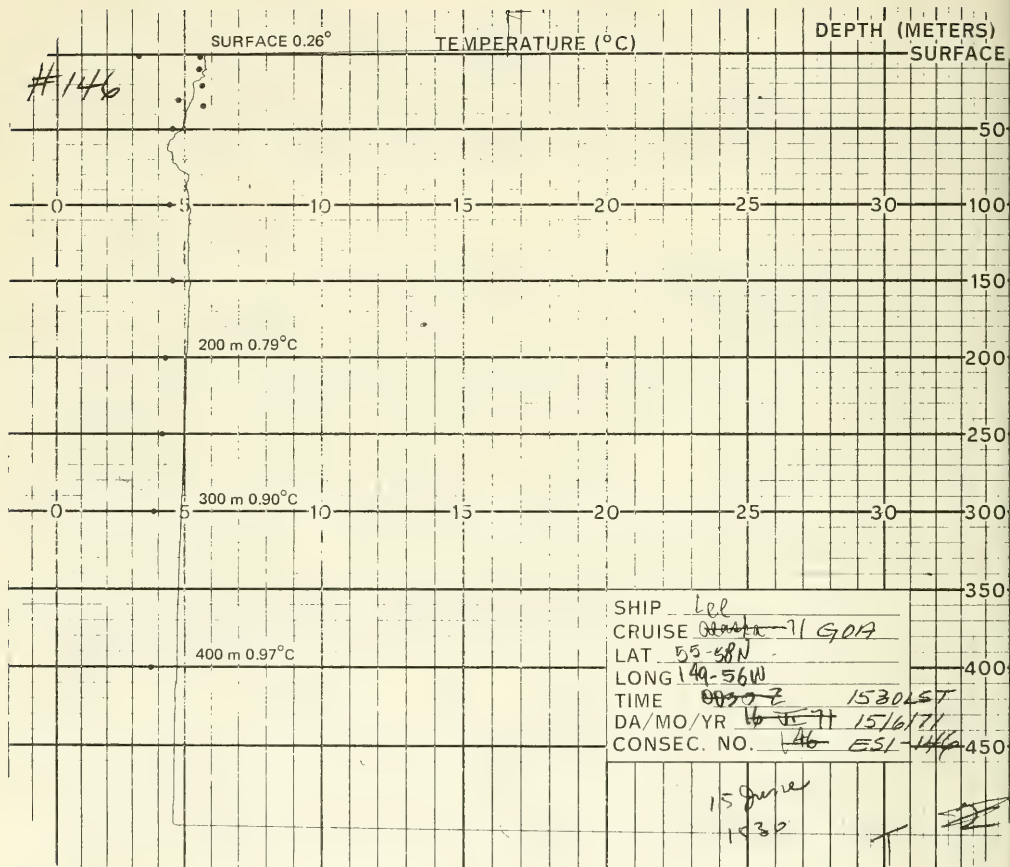 SURFACE 0.26° TEMPERATURE (°C) DEPTH (METERS)
SURFACE
#146
50
0 5 10 15 20 25 30 100
150
200 m 0.79°C 200
250
300 m 0.90°C
0 5 10 15 20 25 30 300
350
SHIP Lee
CRUISE Alaska 71 GOA
400 m 0.97°C 400
LAT 55-58N
LONG 149-56W
TIME 0030 Z 1530LST
DA/MO/YR 16 VI 71 15/6/71
CONSEC. NO. 146 ESI-146 450
15 June
1530